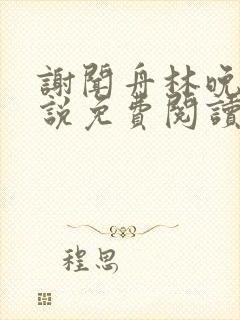 謝聞舟林晚
說免費閱讀
程思